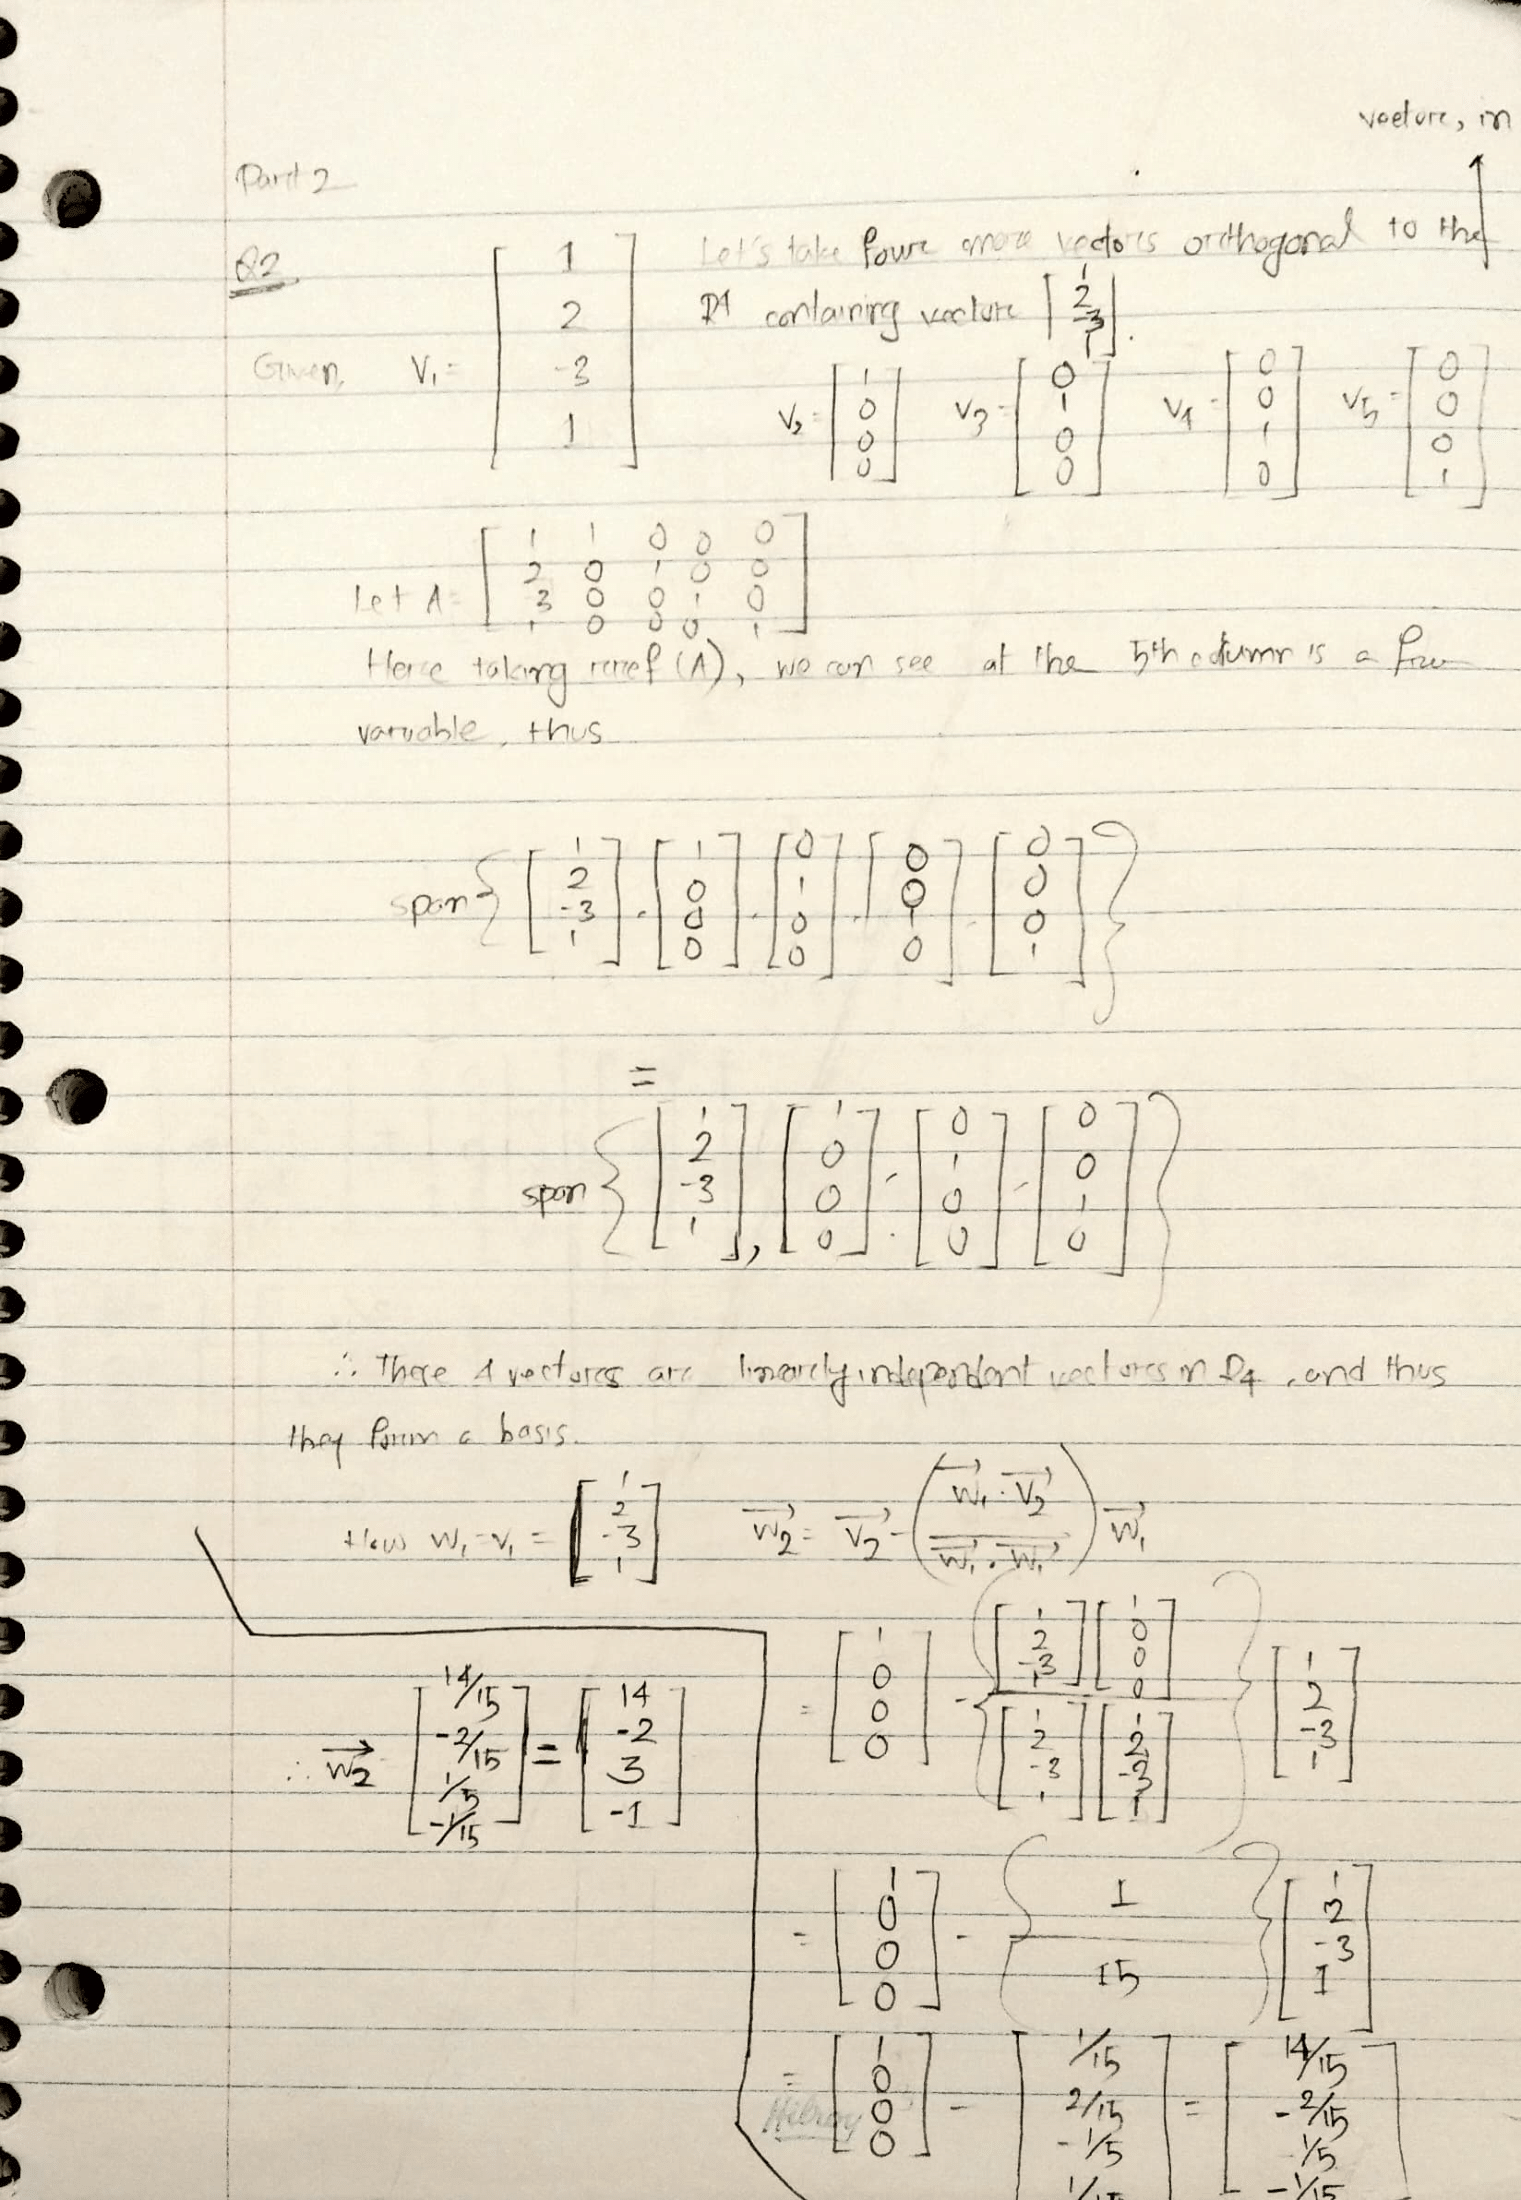 vectore, in
Part 2
Q2
Let's take four more vectors orthogonal to the
R4 containing vectore [1 2 -3 1].
Given, V1 = [1 2 -3 1]
V2 = [1 0 0 0] V3 = [0 1 0 0] V4 = [0 0 1 0] V5 = [0 0 0 1]
Let A = [1 1 0 0 0
2 0 1 0 0
-3 0 0 1 0
1 0 0 0 1]
Here taking rref (A), we can see at the 5th column is a free
variable, thus
span { [1 2 -3 1], [1 0 0 0], [0 1 0 0], [0 0 1 0], [0 0 0 1] }
=
span { [1 2 -3 1], [1 0 0 0], [0 1 0 0], [0 0 1 0] }
∴ These 4 vectores are linearly independent vectores in R4, and thus
they form a basis.
Now W1 = V1 = [1 2 -3 1] W2 = V2 - (W1 · V2 / W1 · W1) W1
= [1 0 0 0] - { [1 2 -3 1] [1 0 0 0] / [1 2 -3 1] [1 2 -3 1] } [1 2 -3 1]
∴ W2 [14/15 -2/15 1/5 -1/15] = [14 -2 3 -1]
= [1 0 0 0] - { 1 / 15 } [1 2 -3 1]
= [1 0 0 0] - [1/15 2/15 -1/5 1/15] = [14/15 -2/15 1/5 -1/15]
Hilroy